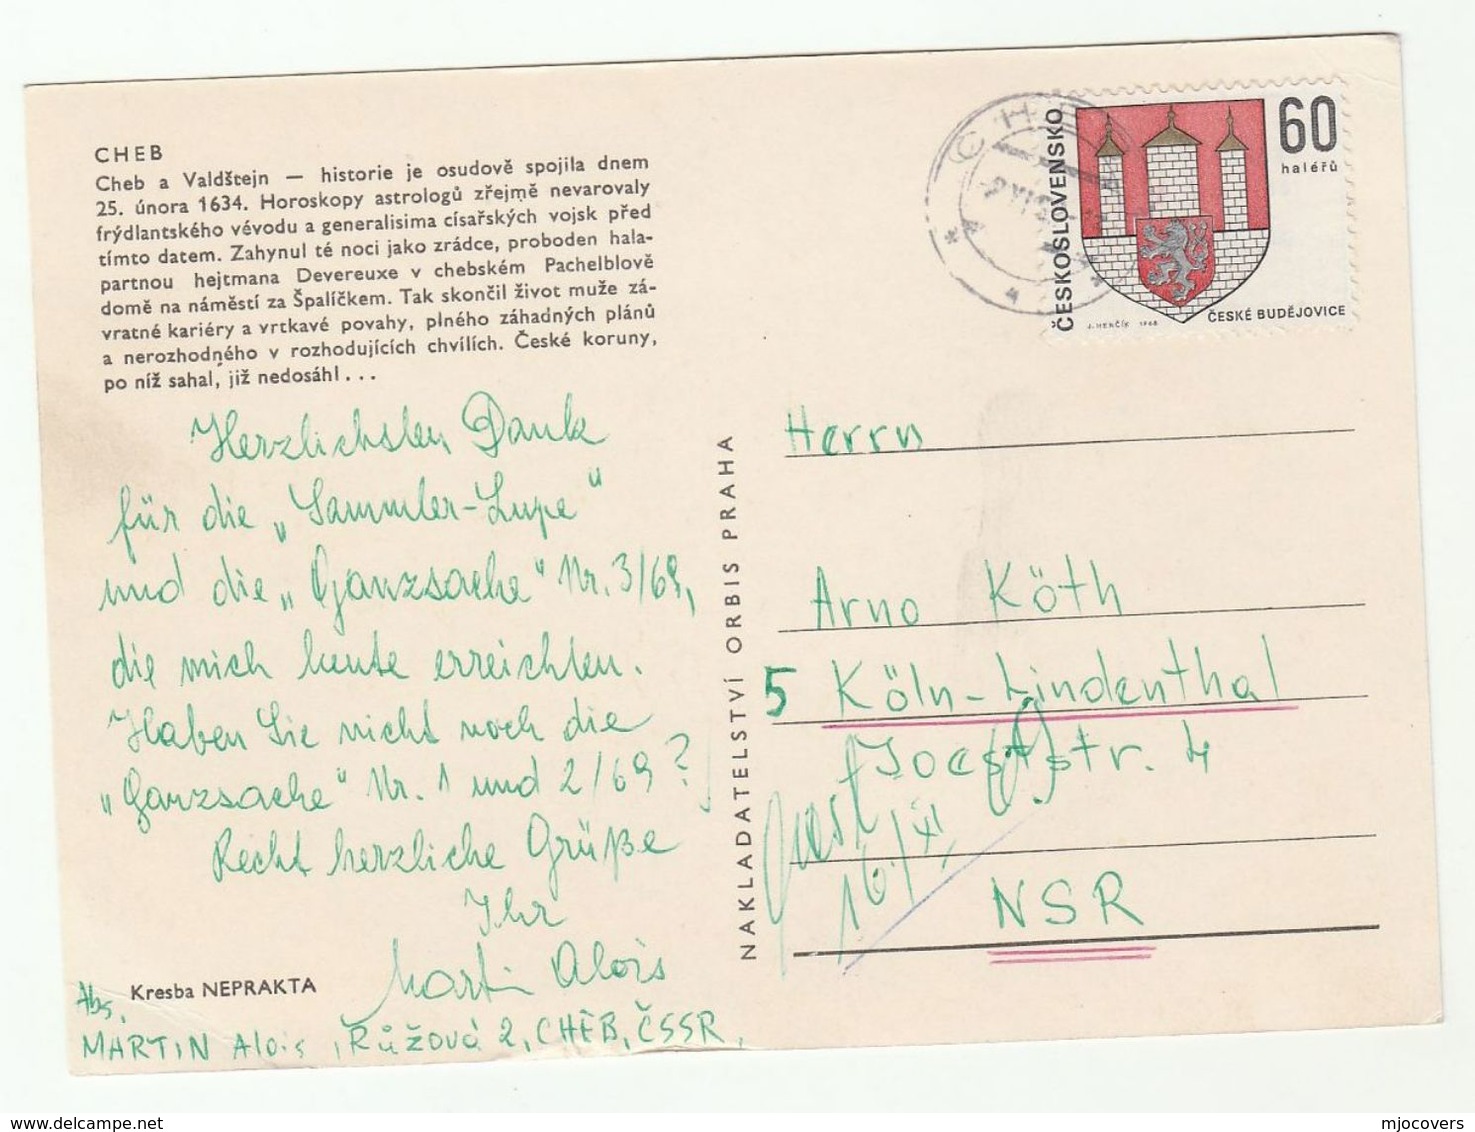 CHEB
Cheb a Valdštejn — historie je osudově spojila dnem
25. února 1634. Horoskopy astrologů zřejmě nevarovaly
frýdlantského vévodu a generalisima císařských vojsk před
tímto datem. Zahynul té noci jako zrádce, proboden hala-
partnou hejtmana Devereuxe v chebském Pachelblově
domě na náměstí za Špalíčkem. Tak skončil život muže zá-
vratné kariéry a vrtkavé povahy, plného záhadných plánů
a nerozhodného v rozhodujících chvílích. České koruny,
po níž sahal, již nedosáhl . . .
Herzlichsten Dank
für die „Sammler-Lupe"
und die „Ganzsache" Nr. 3/69,
die mich heute erreichten.
Haben Sie nicht noch die
„Ganzsache" Nr. 1 und 2/69?
Recht herzliche Grüße
Ihr
Martin Alois
Kresba NEPRAKTA
Abs.
MARTIN Alois, Růžová 2, CHEB, ČSSR.
NAKLADATELSTVÍ ORBIS PRAHA
CHEB
ČESKOSLOVENSKO
60
haléřů
J. HERČÍK 1968
ČESKÉ BUDĚJOVICE
Herrn
Arno Köth
5 Köln-Lindenthal
Joeststr. 4
16/XI,
NSR
mjocovers